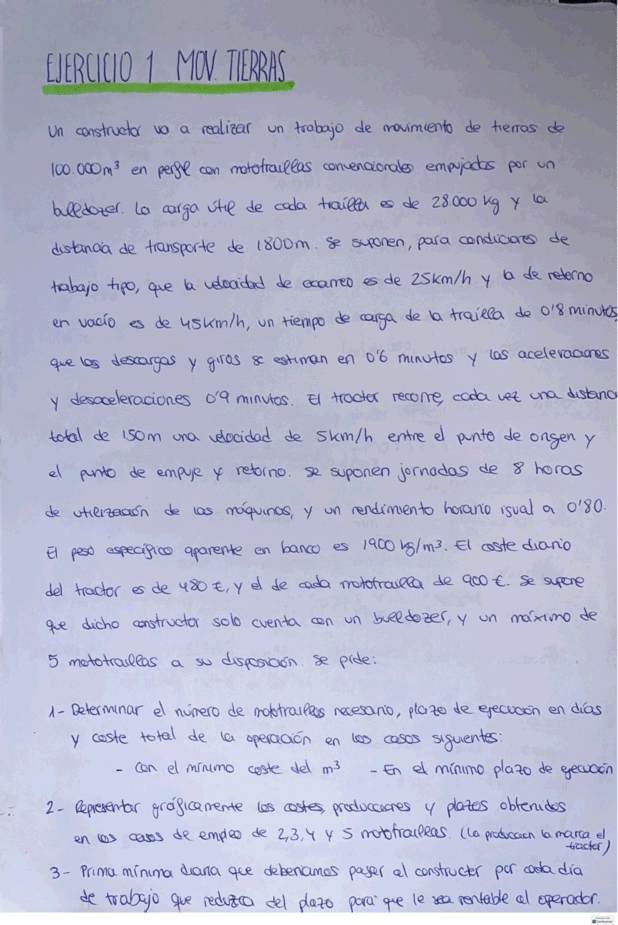 EJERCICIO 1 MOV. TIERRAS
Un constructor va a realizar un trabajo de movimiento de tierras de
100.000m³ en perfil con mototraillas convencionales empujadas por un
bulldozer. La carga útil de cada trailla es de 28.000 kg y la
distancia de transporte de 1800m. Se suponen, para condiciones de
trabajo tipo, que la velocidad de acarreo es de 25km/h y la de retorno
en vacío es de 45km/h, un tiempo de carga de la trailla de 0'8 minutos,
que las descargas y giros se estiman en 0'6 minutos y las aceleraciones
y desaceleraciones 0'9 minutos. El tractor recorre, cada vez una distanc
total de 150m una velocidad de 5km/h entre el punto de origen y
el punto de empuje y retorno. Se suponen jornadas de 8 horas
de utilización de las máquinas, y un rendimiento horario igual a 0'80.
El peso específico aparente en banco es 1900 kg/m³. El coste diario
del tractor es de 480 €, y el de cada mototrailla de 900 €. Se supone
que dicho constructor solo cuenta con un bulldozer, y un máximo de
5 mototraillas a su disposición. Se pide:
1- Determinar el número de mototraillas necesario, plazo de ejecución en días
y coste total de la operación en los casos siguientes:
- Con el mínimo coste del m³ - En el mínimo plazo de ejecución
2- Representar gráficamente los costes, producciones y plazos obtenidos
en los casos de empleo de 2,3,4 y 5 mototraillas. (La producción la marca el
tractor)
3- Prima mínima diaria que deberíamos pagar al constructor por cada día
de trabajo que reduzca del plazo para que le sea rentable al operador.